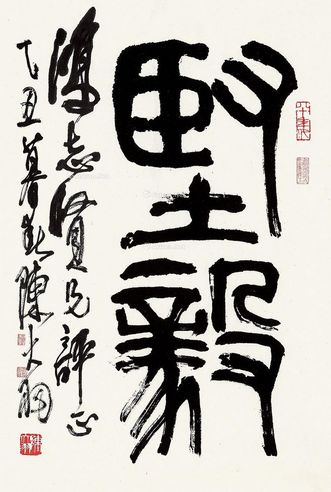 堅毅
鴻志賢兄評正
乙丑暮春陳大羽